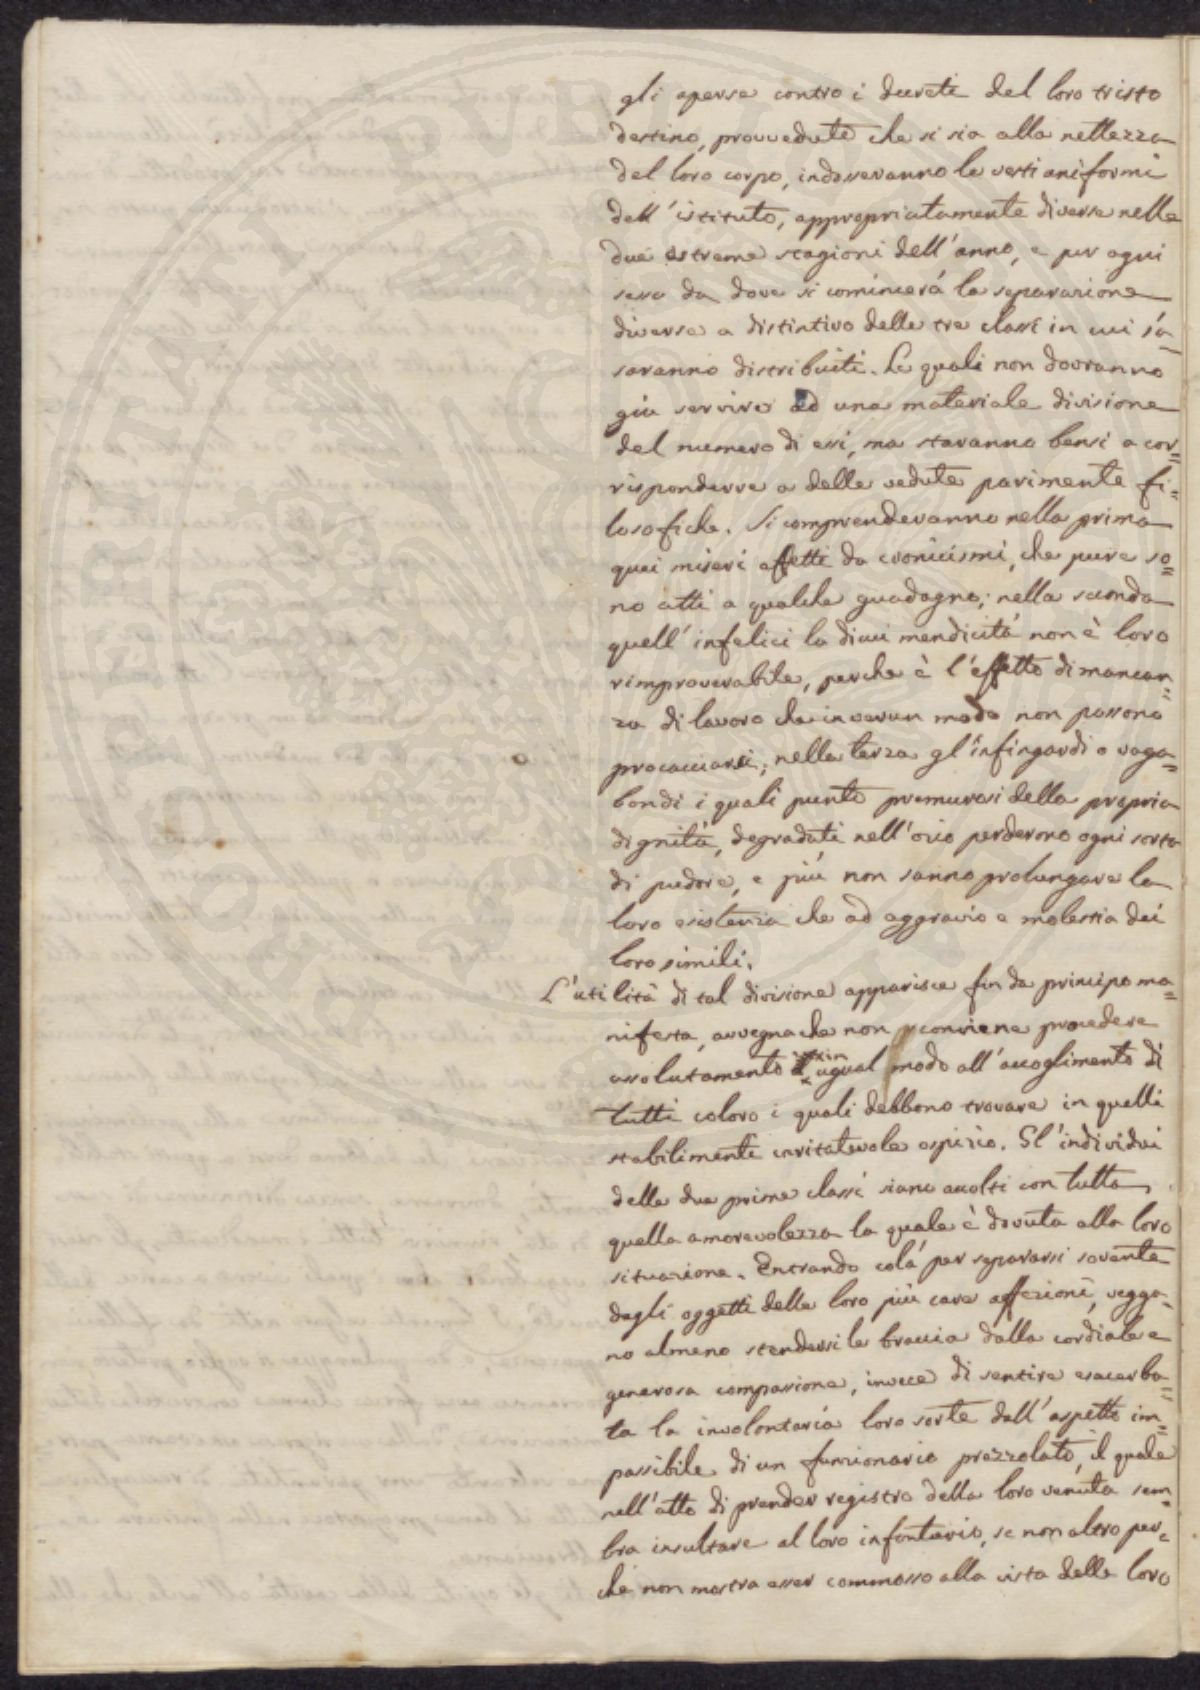 gli aperse contro i decreti del loro tristo
destino, provveduto che si sia alla nettezza
del loro corpo, indosseranno le vesti uniformi
dell'istituto, appropriatamente diverse nelle
due estreme stagioni dell'anno, e per ogni
sesso da dove si comincerá la separazione
diverse a distintivo delle tre classi in cui
saranno distribuiti. Le quali non dovranno
giá servire ad una materiale divisione
del numero di essi, ma staranno bensi a cor=
rispondere a delle vedute parimente fi=
losofiche. Si comprenderanno nella prima
quei miseri affetti da cronicismi, che pure so=
no atti a qualche guadagno; nella seconda
quell'infelici la di cui mendicitá non è loro
rimproverabile, perche è l'effetto di mancan=
za di lavoro che in verun modo non possono
procacciarsi; nella terza gl'infingardi o vaga=
bondi i quali punto premurosi della propria
dignitá, degradati nell'ozio perderono ogni sorta
di pudore, e piú non sanno prolungare la
loro esistenza che ad aggravio e molestia dei
loro simili.
L'utilitá di tal divisione apparisce fin da principo ma=
nifesta, avvegnache non conviene procedere
assolutamente in ugual modo all'accoglimento di
tutti coloro i quali debbono trovare in quelli
stabilimenti caritatevole ospizio. Gl'individui
delle due prime classi siano accolti con tutta
quella amorevolezza la quale è dovuta alla loro
situazione. Entrando colá per separarsi sovente
dagli oggetti delle loro più care affezioni, vegga=
no almeno stendersi le braccia dalla cordiale e
generosa compassione, invece di sentire esacerba=
ta la involontaria loro sorte dall'aspetto im=
passibile di un funzionario prezzolato, il quale
nell'atto di prender registro della loro venuta sem=
bra insultare al loro infortunio, se non altro per=
ché non mostra esser commosso alla vista delle loro